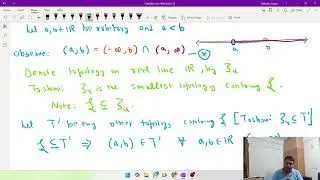 Let a,b ∈ ℝ be arbitrary and a < b
Observe: (a,b) = (-∞,b) ∩ (a,∞) — *
a b
Denote topology on real line ℝ, by ζu
To show: ζu is the smallest topology containing ζ.
Note: ζ ⊆ ζu.
Let T' be any other topology containing ζ [To show: ζu ⊆ T'
ζ ⊆ T' ⇒ (a,b) ∈ T' ∀ a,b ∈ ℝ